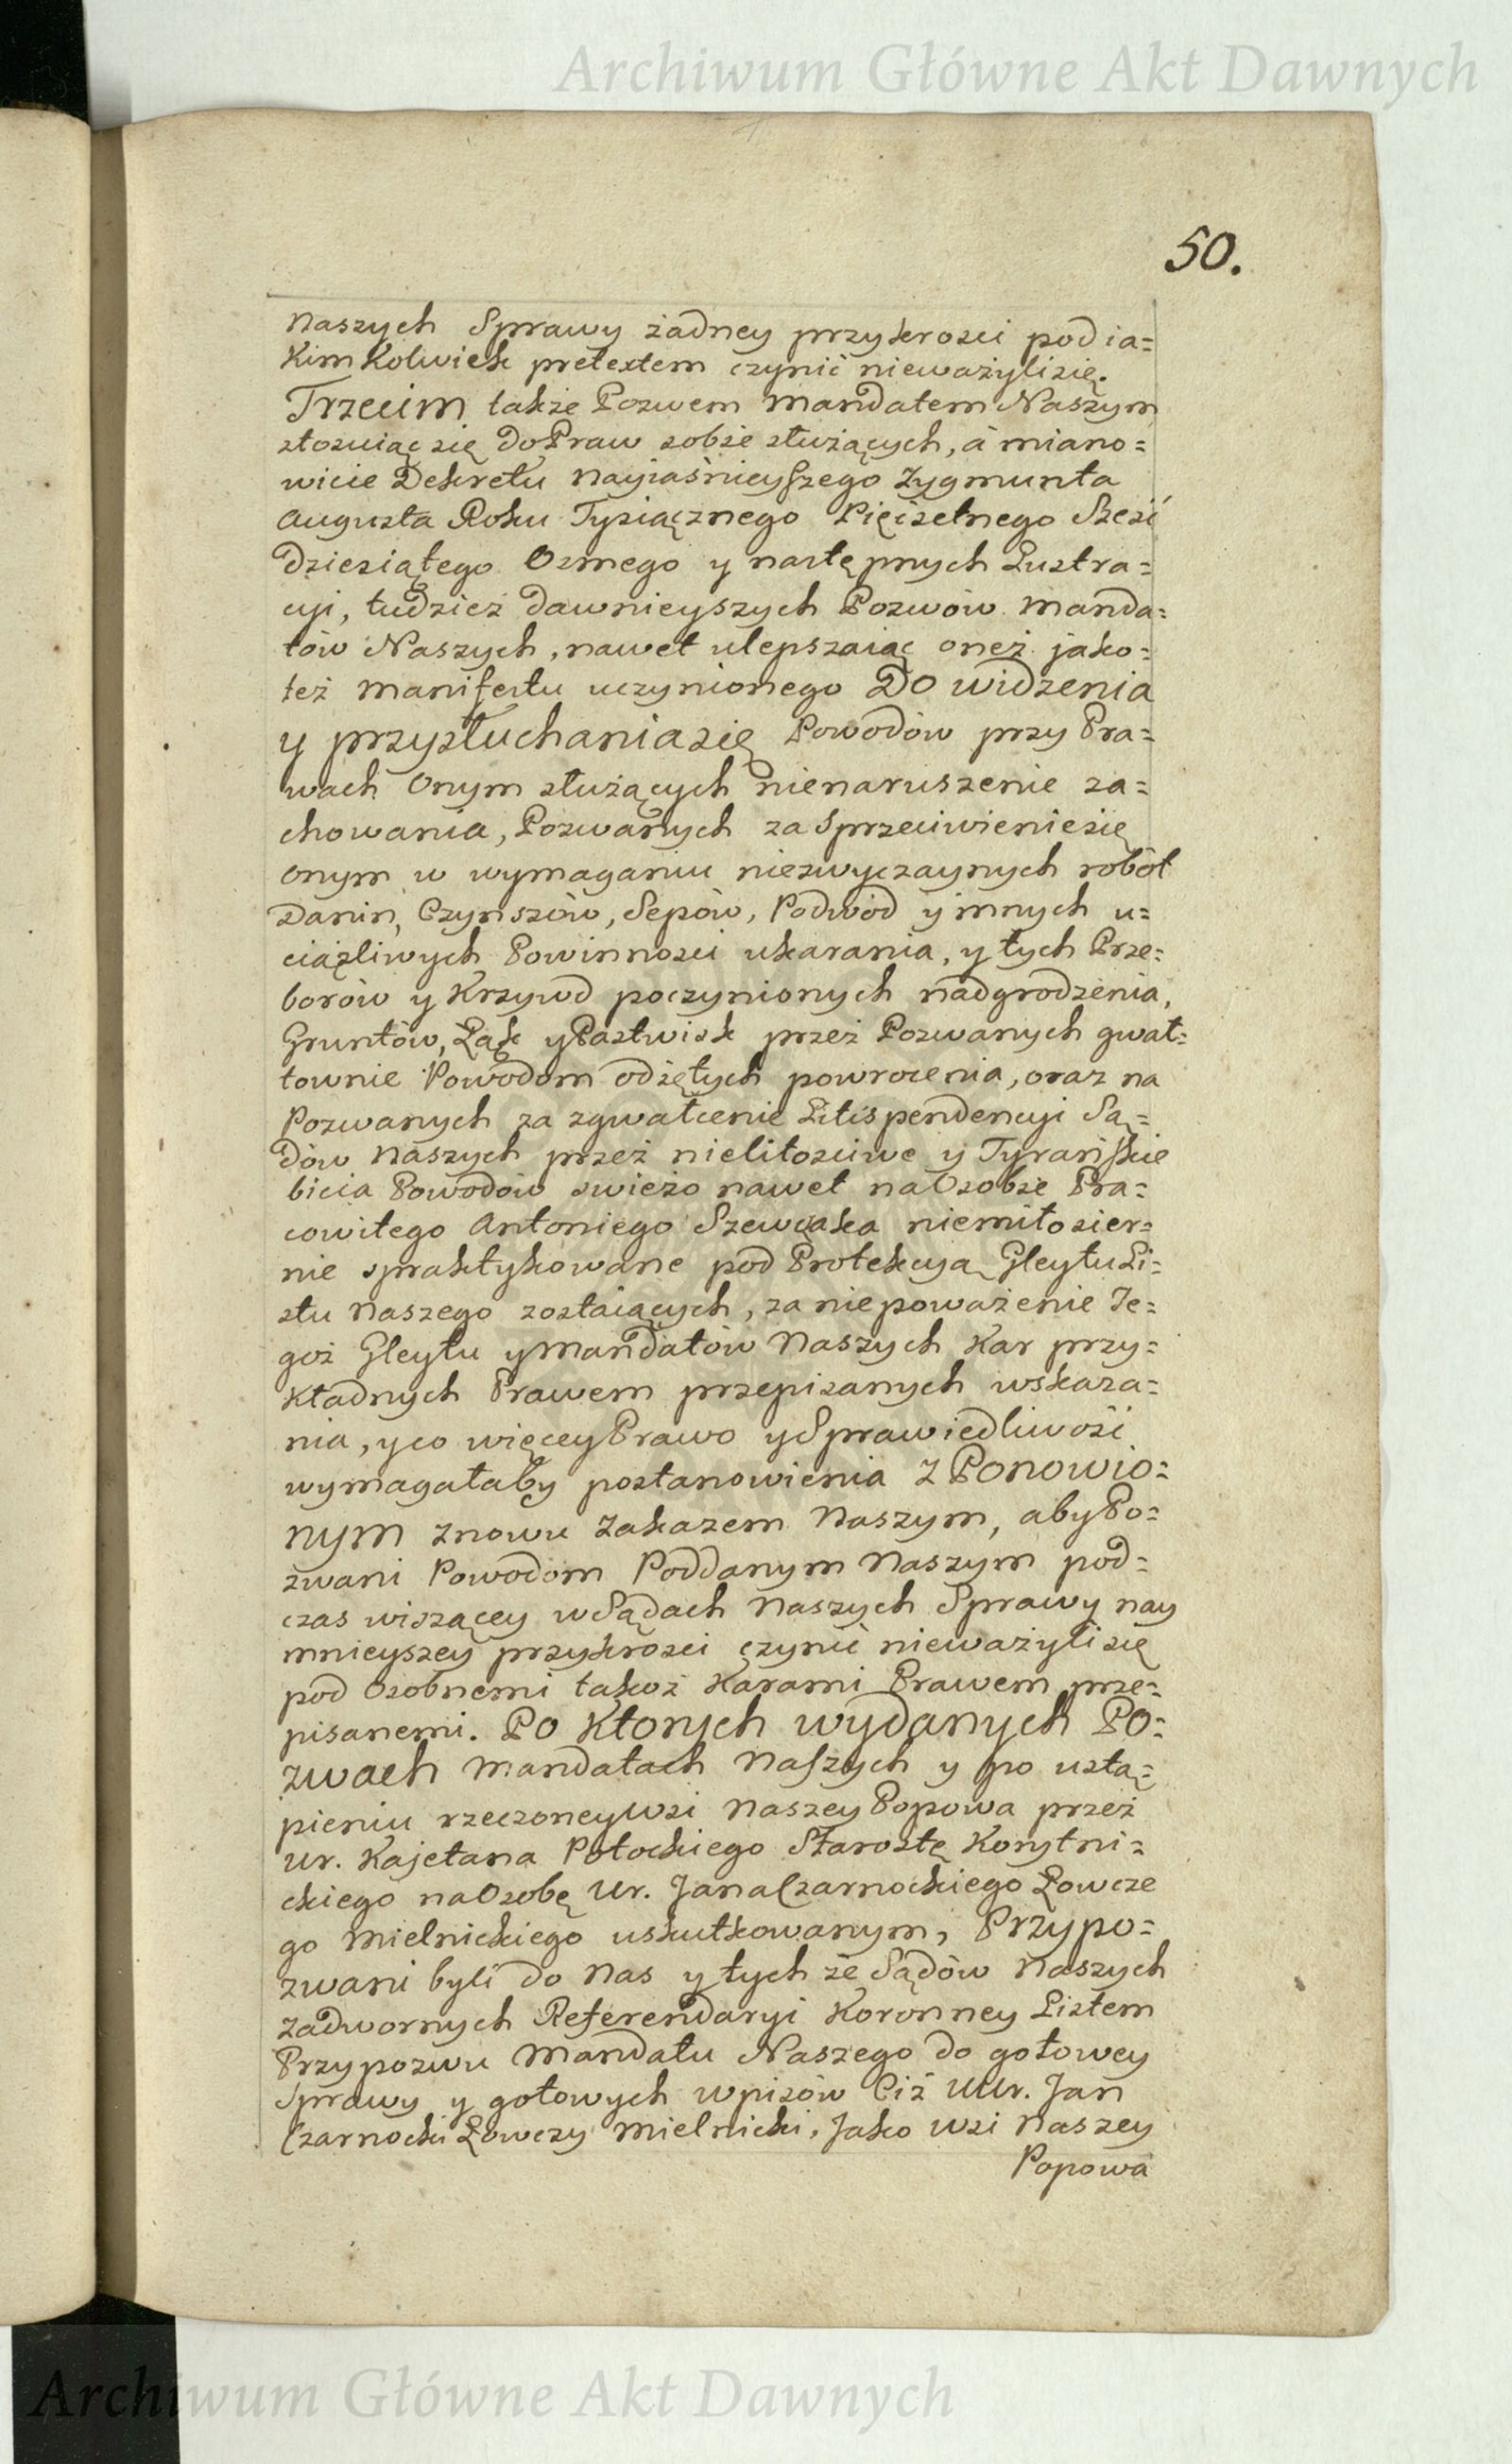 Archiwum Główne Akt Dawnych
50.
naszych Sprawy żadney przykrosci pod ia=
kimkolwiek pretextem czynić nieważylisię.
Trzecim także Pozwem mandatem Naszym
stosuiąc się do Praw sobie służących, á miano=
wicie Dekretu Nayiaśnieyszego Zygmunta
Augusta Roku Tysiącznego Pięćsetnego Sześć
dziesiątego Osmego y następnych Lustra=
cyi, tudzież dawnieyszych Pozwów manda=
tów Naszych, nawet ulepszaiąc oneż jako=
też manifestu uczynionego Do widzenia
y przysłuchania się Powodów przy Pra=
wach Onym służących nienaruszenie za=
chowania, Pozwanych za Sprzeciwieniesię
onym w wymaganiu niezwyczaynych robót
Danin, Czynszów, Sepów, Podwód y innych u=
ciążliwych Powinnosci ukarania, y tych Prze=
borów y Krzywd poczynionych nadgrodzenia,
Gruntów, Łąk y Pastwisk przez Pozwanych gwał=
townie Powodom odiętych powrocenia, oraz na
Pozwanych za zgwałcenie Litispendencyi Są=
dów naszych przez nielitosciwe y Tyrańskie
bicia Powodów swieżo nawet na Osobie Pra=
cowitego Antoniego Szewczaka niemiłosier=
nie spraktykowane pod Protekcyą GleytuLi=
stu naszego zostaiących, za niepoważenie Te=
goż Gleytu y mandatów Naszych Kar przy=
kładnych Prawem przepisanych wskaza=
nia, y co więcey Prawo y Sprawiedliwość
wymagałaby postanowienia z Ponowio=
nym znowu zakazem Naszym, aby Po=
zwani Powodom Poddanym Naszym pod=
czas wiszącey w Sądach Naszych Sprawy nay
mnieyszey przykrosci czynić nieważyli się
pod Osobnemi takoż Karami Prawem prze=
pisanemi. Po Ktorych wydanych Po=
zwach mandatach Naszych y po ustą=
pieniu rzeczoney Wsi naszey Popowa przez
Ur. Kajetana Potockiego Starostę Korytni=
ckiego na Osobę Ur. Jana Czarnockiego Łowcze
go Mielnickiego uskutkowanym, Przypo=
zwani byli do Nas y tych że Sądów Naszych
Zadwornych Referendaryi Koronney Listem
Przypozwu Mandatu Naszego do gotowey
Sprawy y gotowych wpisów Ciż UUr. Jan
Czarnocki Łowczy Mielnicki, Jako Wsi Naszey
Popowa
Archiwum Główne Akt Dawnych